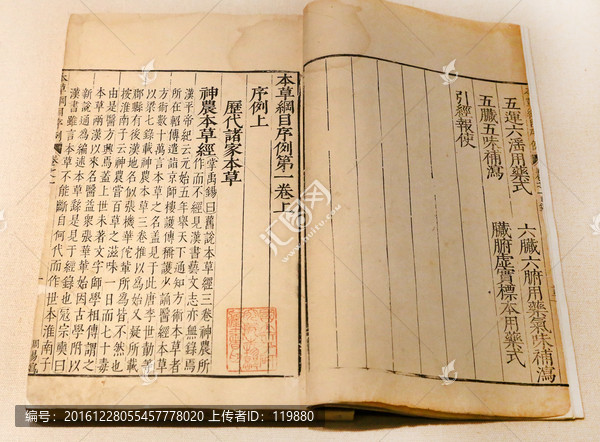 五運六淫用藥式
六臟六腑用藥氣味補瀉
五臟五味補瀉
臟腑虛實標本用藥式
引經報使
本草綱目序例第一卷上
序例上
歷代諸家本草
神農本草經掌禹錫曰舊說本草經三卷神農所
作而不經見漢書藝文志亦無錄焉
漢平帝紀云元始五年舉天下通知方術本草者
所在軺傳遣詣京師樓護傳稱護少誦醫經本草
方術數十萬言本草之名蓋見于此唐李世勣等
以梁七錄載神農本草三卷推以為始又疑所載
郡縣有後漢地名似張機華佗輩所為皆不然也
按淮南子云神農嘗百草之滋味一日而七十毒
由是醫方興焉蓋上世未著文字師學相傳謂之
本草兩漢以來名醫益衆張華輩始因古學附以
新說通為編述本草繇是見于經錄也寇宗奭曰
漢書雖言本草不能斷自何代而作世本淮南子
本草綱目序例 卷之一
编号：20161228055457778020 上传者ID：119880
汇图网